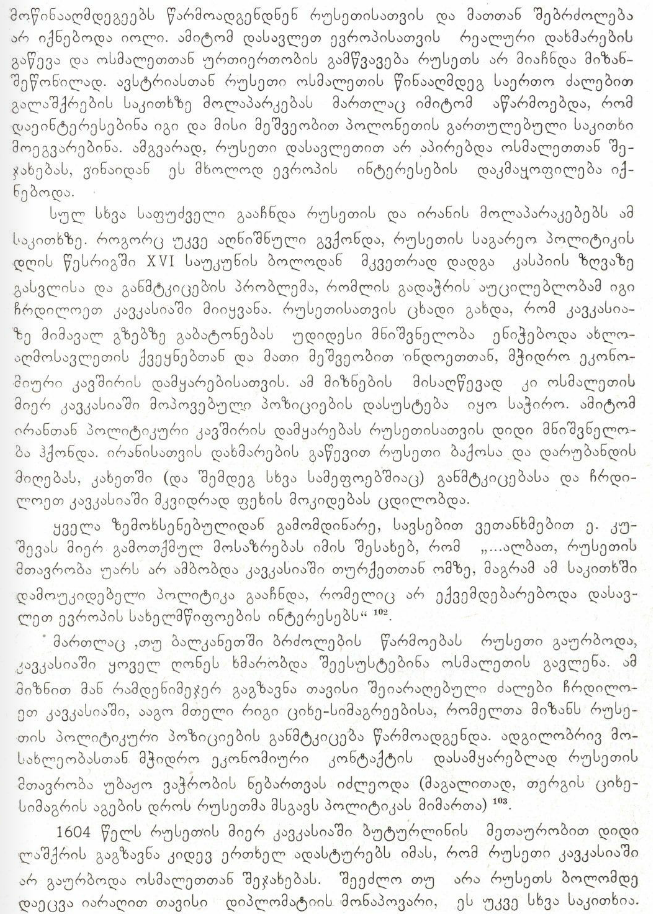 მოწინააღმდეგეებს წარმოადგენდნენ რუსეთისათვის და მათთან შებრძოლება
არ იქნებოდა იოლი. ამიტომ დასავლეთ ევროპისათვის რეალური დახმარების
გაწევა და ოსმალეთთან ურთიერთობის გამწვავება რუსეთს არ მიაჩნდა მიზან-
შეწონილად. ავსტრიასთან რუსეთი ოსმალეთის წინააღმდეგ საერთო ძალებით
გალაშქრების საკითხზე მოლაპარკებას მართლაც იმიტომ აწარმოებდა, რომ
დაეინტერესებინა იგი და მისი მეშვეობით პოლონეთის გართულებული საკითხი
მოეგვარებინა. ამგვარად, რუსეთი დასავლეთით არ აპირებდა ოსმალეთთან შე-
ჯახებას, ვინაიდან ეს მხოლოდ ევროპის ინტერესების დაკმაყოფილება იქ-
ნებოდა.
სულ სხვა საფუძველი გააჩნდა რუსეთის და ირანის მოლაპარაკებებს ამ
საკითხზე. როგორც უკვე აღნიშნული გვქონდა, რუსეთის საგარეო პოლიტიკის
დღის წესრიგში XVI საუკუნის ბოლოდან მკვეთრად დადგა კასპიის ზღვაზე
გასვლისა და განმტკიცების პრობლემა, რომლის გადაჭრის აუცილებლობამ იგი
ჩრდილოეთ კავკასიაში მიიყვანა. რუსეთისათვის ცხადი გახდა, რომ კავკასია-
ზე მიმავალ გზებზე გაბატონებას უდიდესი მნიშვნელობა ენიჭებოდა ახლო-
აღმოსავლეთის ქვეყნებთან და მათი მეშვეობით ინდოეთთან, მჭიდრო ეკონო-
მიური კავშირის დამყარებისათვის. ამ მიზნების მისაღწევად კი ოსმალეთის
მიერ კავკასიაში მოპოვებული პოზიციების დასუსტება იყო საჭირო. ამიტომ
ირანთან პოლიტიკური კავშირის დამყარებას რუსეთისათვის დიდი მნიშვნელო-
ბა ჰქონდა. ირანისათვის დახმარების გაწევით რუსეთი ბაქოსა და დარუბანდის
მიღებას, კახეთში (და შემდეგ სხვა სამეფოებშიაც) განმტკიცებასა და ჩრდი-
ლოეთ კავკასიაში მკვიდრად ფეხის მოკიდებას ცდილობდა.
ყველა ზემოხსენებულიდან გამომდინარე, სავსებით ვეთანხმებით ე. კუ-
შევას მიერ გამოთქმულ მოსაზრებას იმის შესახებ, რომ „...ალბათ, რუსეთის
მთავრობა უარს არ ამბობდა კავკასიაში თურქეთთან ომზე, მაგრამ ამ საკითხში
დამოუკიდებელი პოლიტიკა გააჩნდა, რომელიც არ ექვემდებარებოდა დასავ-
ლეთ ევროპის სახელმწიფოების ინტერესებს“ ¹⁰².
მართლაც ,თუ ბალკანეთში ბრძოლების წარმოებას რუსეთი გაურბოდა,
კავკასიაში ყოველ ღონეს ხმარობდა შეესუსტებინა ოსმალეთის გავლენა. ამ
მიზნით მან რამდენიმეჯერ გაგზავნა თავისი შეიარაღებული ძალები ჩრდილო-
ეთ კავკასიაში, ააგო მთელი რიგი ციხე-სიმაგრეებისა, რომელთა მიზანს რუსე-
თის პოლიტიკური პოზიციების განმტკიცება წარმოადგენდა. ადგილობრივ მო-
სახლეობასთან მჭიდრო ეკონომიური კონტაქტის დასამყარებლად რუსეთის
მთავრობა უბაჟო ვაჭრობის ნებართვას იძლეოდა (მაგალითად, თერგის ციხე-
სიმაგრის აგების დროს რუსეთმა მსგავს პოლიტიკას მიმართა) ¹⁰³.
1604 წელს რუსეთის მიერ კავკასიაში ბუტურლინის მეთაურობით დიდი
ლაშქრის გაგზავნა კიდევ ერთხელ ადასტურებს იმას, რომ რუსეთი კავკასიაში
არ გაურბოდა ოსმალეთთან შეჯახებას. შეეძლო თუ არა რუსეთს ბოლომდე
დაეცვა იარაღით თავისი დიპლომატიის მონაპოვარი, ეს უკვე სხვა საკითხია.